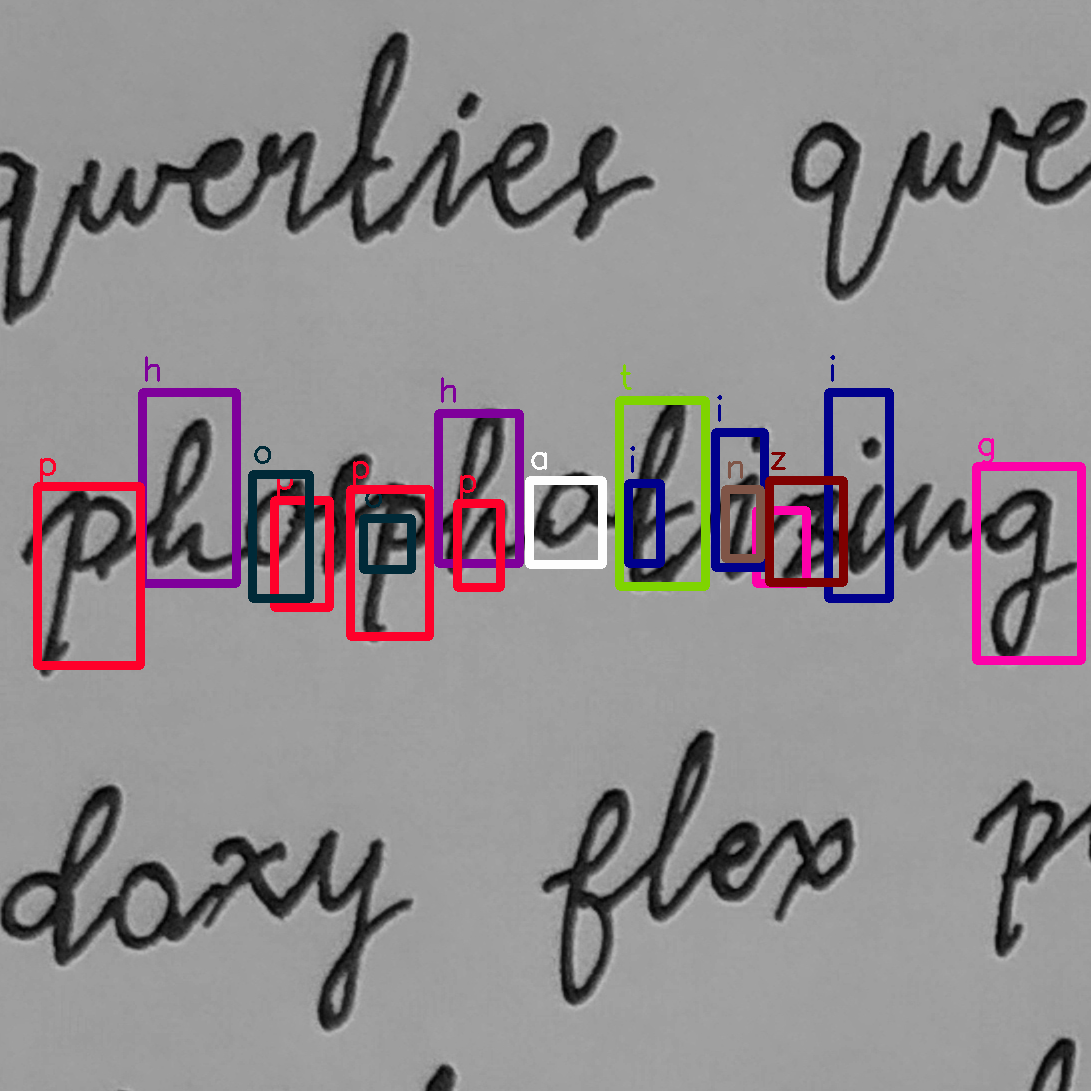 qwerties qwe
h h t i i
p o p p p a i n z g
phosphatizing
doxy flex p